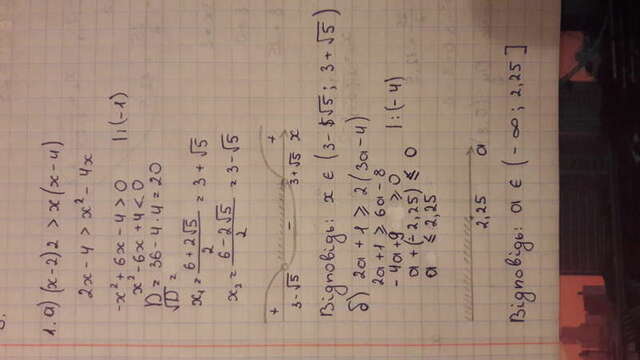 1. а) (x-2)2 > x(x-4)
2x-4 > x² - 4x
-x² + 6x - 4 > 0 |:(-1)
x² - 6x + 4 < 0
D = 36 - 4·4 = 20
√D =
x₁ = (6+2√5)/2 = 3 + √5
x₂ = (6-2√5)/2 = 3-√5
+ - +
3-√5 3+√5 x
Відповідь: x ∈ (3-√5; 3+√5)
б) 2a+1 ⩾ 2(3a-4)
2a+1 ⩾ 6a-8
-4a+9 ⩾ 0 |:(-4)
a + (-2,25) ⩽ 0
a ⩽ 2,25
2,25 a
Відповідь: a ∈ (-∞; 2,25]